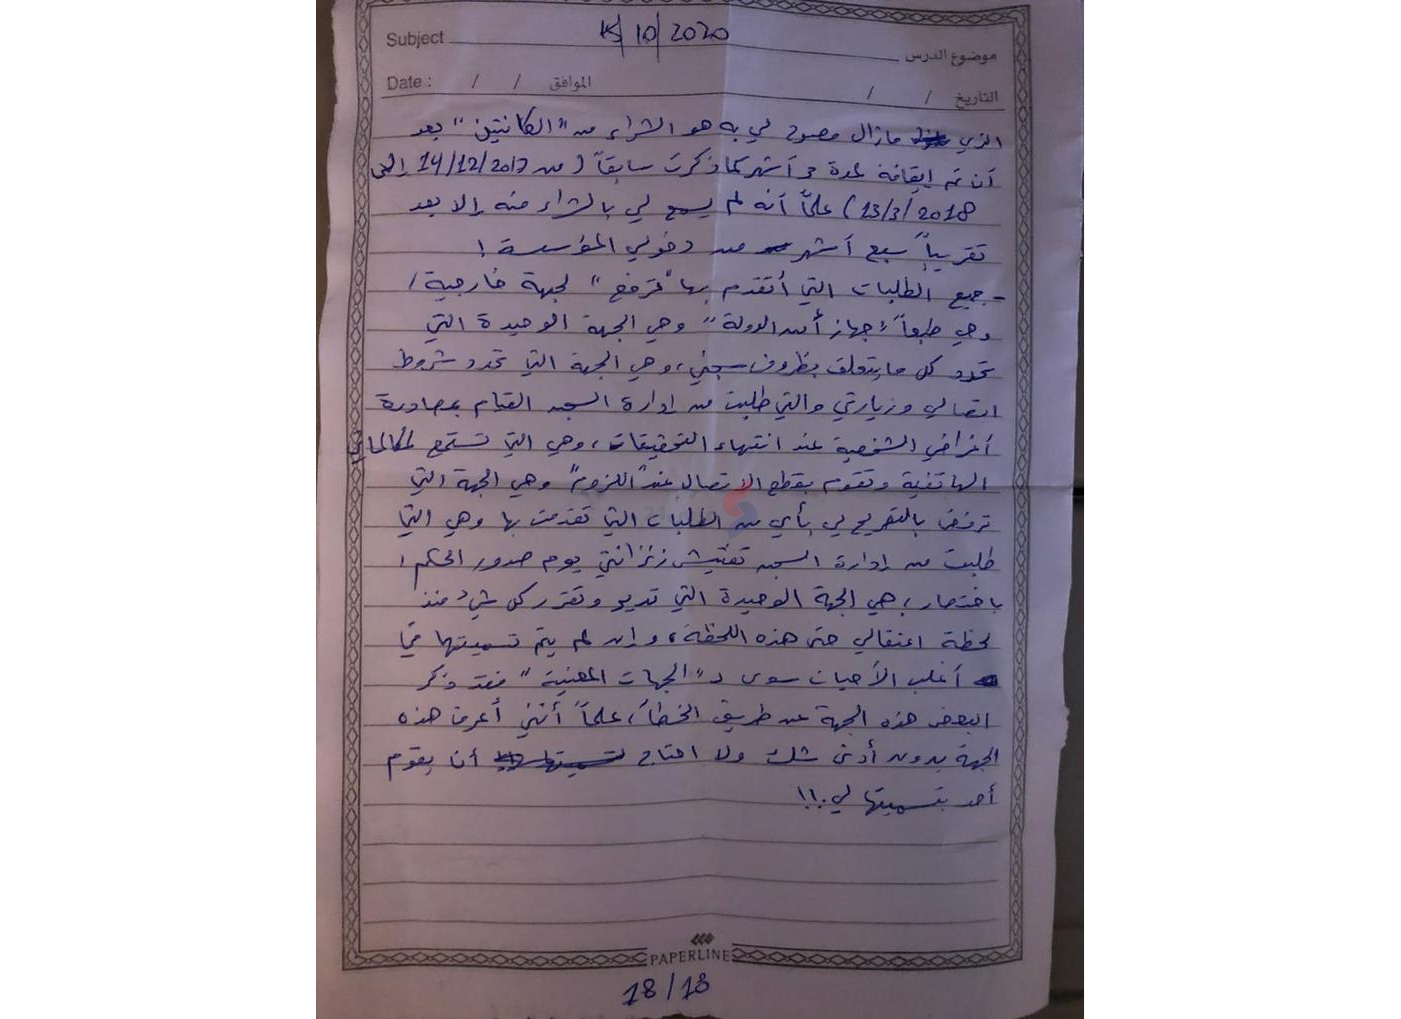 Subject 15/10/2020 موضوع الدرس
Date : / / الموافق / / التاريخ
الذي مازال مسموح لي به هو الشراء من "الكانتين" بعد
أن تم إيقافه لمدة 3 أشهر كما ذكرت سابقاً (من 14/12/2017 إلى
13/3/2018) علماً أنه لم يسمح لي بالشراء منه إلا بعد
تقريباً سبع أشهر من دخولي المؤسسة !
- جميع الطلبات التي أتقدم بها "ترفع" لجهة خارجية /
وهي طبعاً "جهاز أمن الدولة" وهي الجهة الوحيدة التي
تحدد كل ما يتعلق بظروف سجني، وهي الجهة التي تحدد شروط
اتصالي وزيارتي والتي طلبت من إدارة السجن القيام بمصادرة
أغراضي الشخصية عند انتهاء التحقيقات، وهي التي تستمع لمكالماتي
الهاتفية وتقوم بقطع الاتصال عند "اللزوم" وهي الجهة التي
ترفض بالتصريح لي بأي من الطلبات التي تقدمت بها وهي التي
طلبت من إدارة السجن تفتيش زنزانتي يوم صدور الحكم،
باختصار، هي الجهة الوحيدة التي تدير وتقرر كل شيء منذ
لحظة اعتقالي حتى هذه اللحظة، وإن لم يتم تسميتها في
أغلب الأحيان سوى بـ "الجهات المعنية" فقد ذكر
البعض هذه الجهة عن طريق الخطأ، علماً أنني أعرف هذه
الجهة بدون أدنى شك ولا احتاج أن يقوم
أحد بتسميتها لي..!!
PAPERLINE
18/13